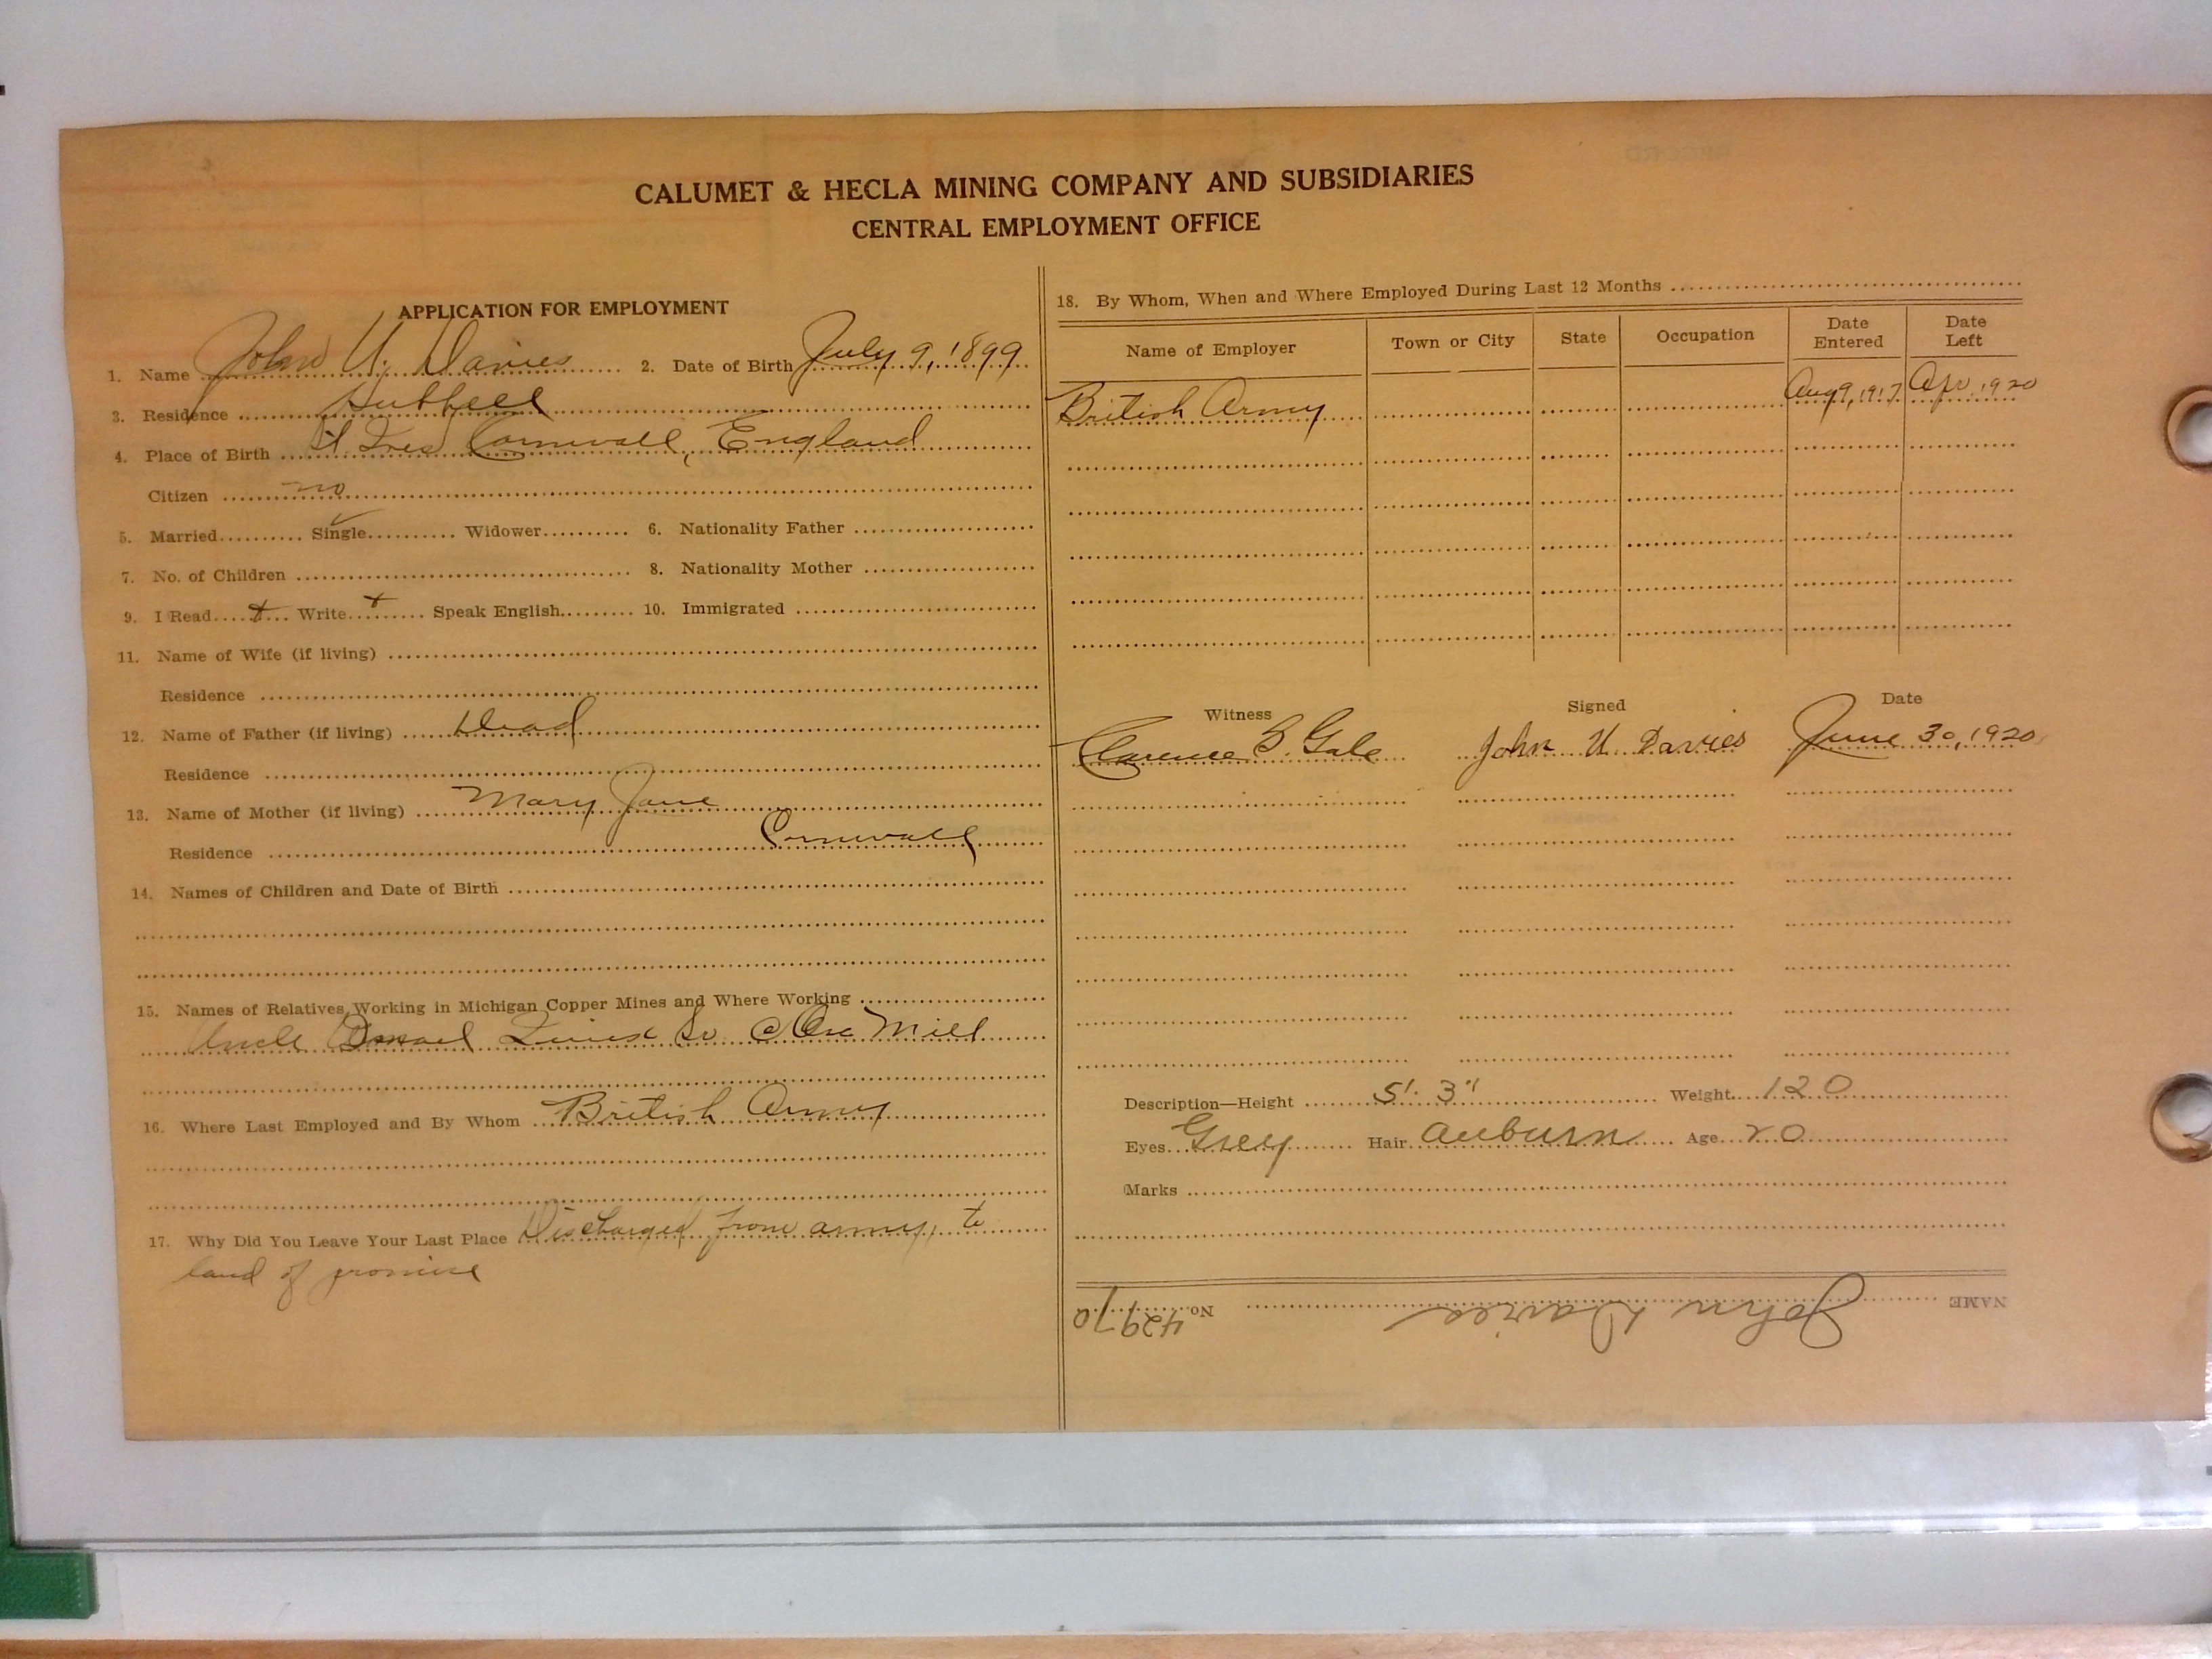 CALUMET & HECLA MINING COMPANY AND SUBSIDIARIES
CENTRAL EMPLOYMENT OFFICE
APPLICATION FOR EMPLOYMENT
1. Name John U. Davies 2. Date of Birth July 9, 1899
3. Residence Hubbell
4. Place of Birth St. Ives Cornwall, England
Citizen no
5. Married.......... Single.......... Widower.......... 6. Nationality Father
7. No. of Children 8. Nationality Mother
9. I Read....+... Write...+...... Speak English......... 10. Immigrated
11. Name of Wife (if living)
Residence
12. Name of Father (if living) Dead
Residence
13. Name of Mother (if living) Mary Jane
Residence Cornwall
14. Names of Children and Date of Birth
15. Names of Relatives Working in Michigan Copper Mines and Where Working
Uncle Mill
16. Where Last Employed and By Whom British Army
17. Why Did You Leave Your Last Place Discharged from army, to
land of promise
18. By Whom, When and Where Employed During Last 12 Months
Name of Employer Town or City State Occupation Date Entered Date Left
British Army Aug 9, 1917 Apr. 1920
Witness Signed Date
Clarence B. Gale John U. Davies June 30, 1920
Description—Height 5'. 3" Weight 120
Eyes Grey Hair auburn Age 20
Marks
NAME John Davies No. 42970